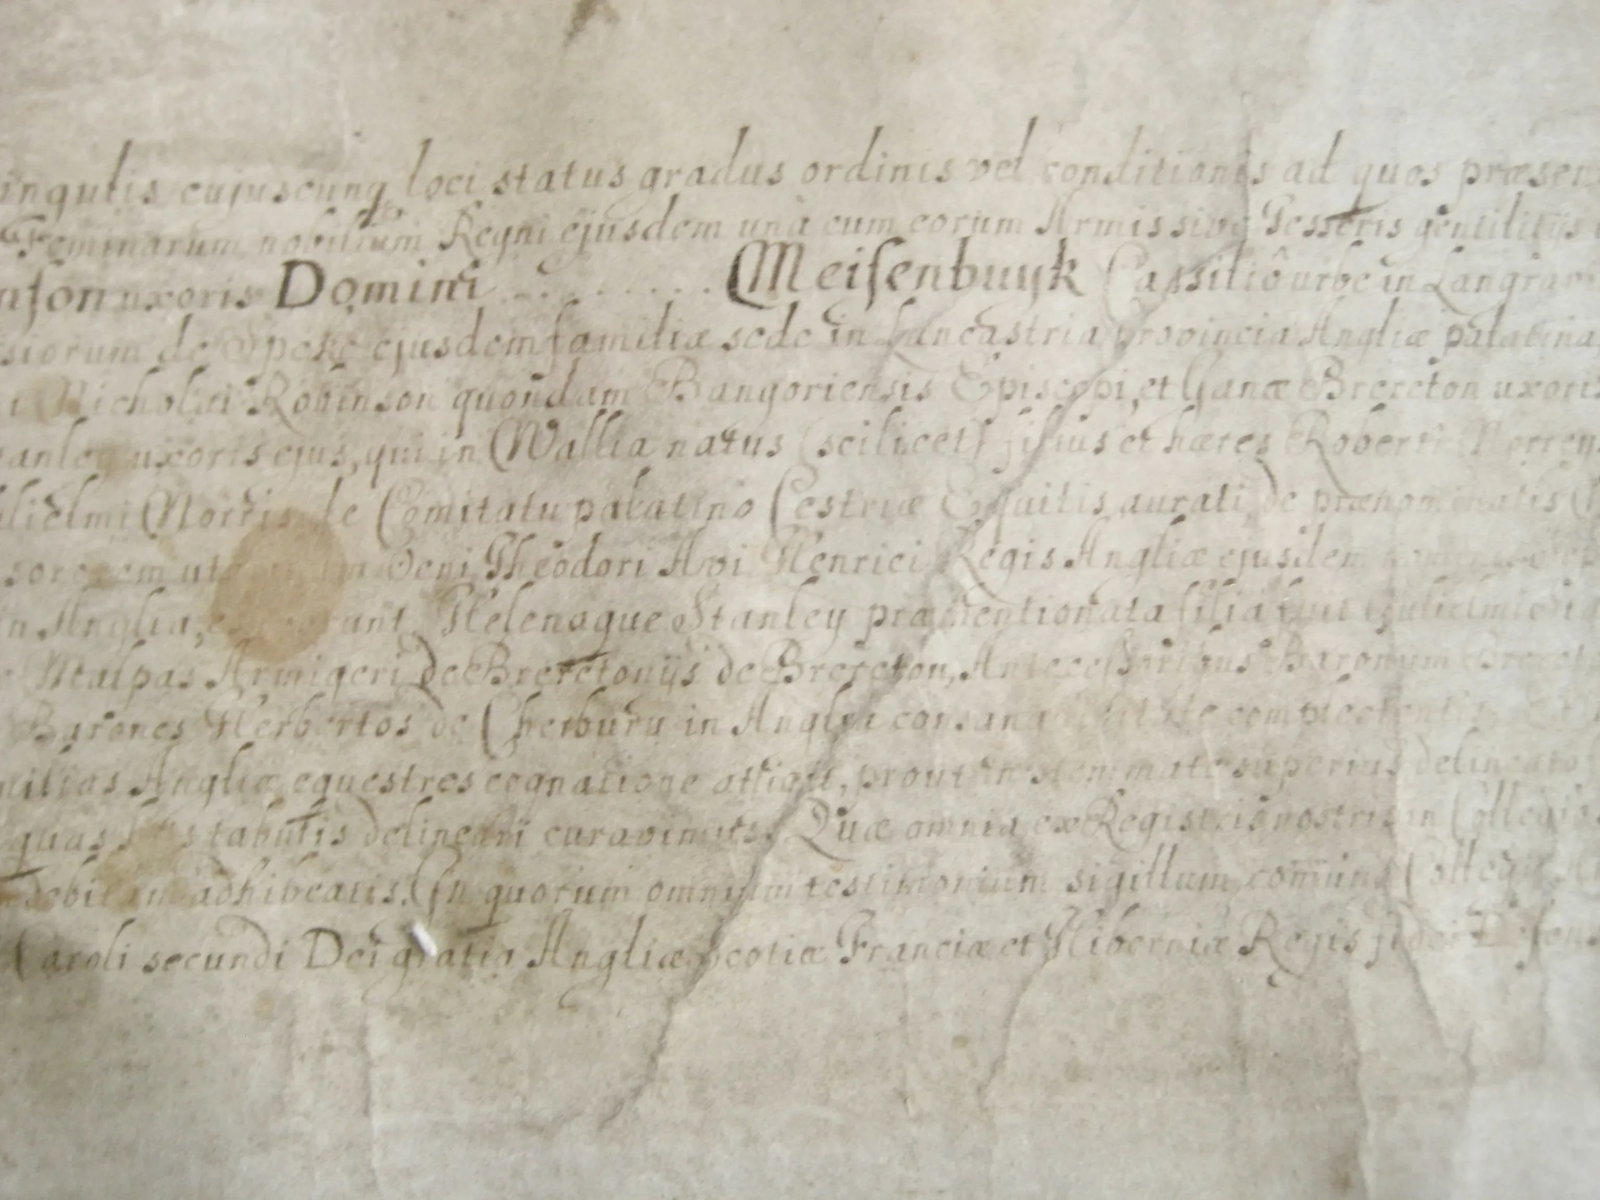 ingulis cujuscunq loci status gradus ordinis vel conditionis ad quos præsen
Feminarum nobilium Regni ejusdem unà cum eorum Armis sive Tesseris gentilitijs
nson uxoris Domini ........ Meisenbuyk Cassiliô urbe in Langravi
siorum de Speke ejusdem familiæ sede in Lancastria provincia Angliæ palatina
i Nicholai Robinson quondam Bangoriensis Episcopi, et Janæ Brereton uxoris
tanley uxoris ejus, qui in Wallia natus (scilicet) filius et hæres Roberti Norreys
ulielmi Norris de Comitatu palatino Cestriæ Equitis aurati de prænominatis
sororem ut Oeni Theodori Avi Henrici Regis Angliæ ejusdem
in Anglia, Helenaque Stanley præmentionata filia fuit Gulielmi
Malpas Armigeri de Breretonijs de Brereton, Antecessoribus Baronum Brereto
Barones Herbertos de Cherbury in Anglia consanguinitate complectentis
milias Angliæ equestres cognatione attigit, prout in stemmate superius delineato
quas his tabulis delineari curavimus. Quæ omnia ex Registris nostris in Collegio
debitam adhibeatis. In quorum omnium testimonium sigillum comune Collegij
Caroli secundi Dei gratia Angliæ Scotiæ Franciæ et Hiberniæ Regis fidei Defens